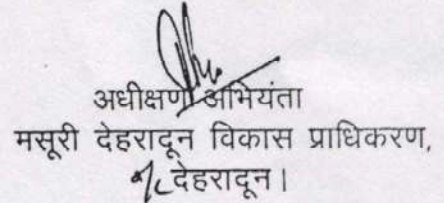 अधीक्षण अभियंता
मसूरी देहरादून विकास प्राधिकरण,
देहरादून।